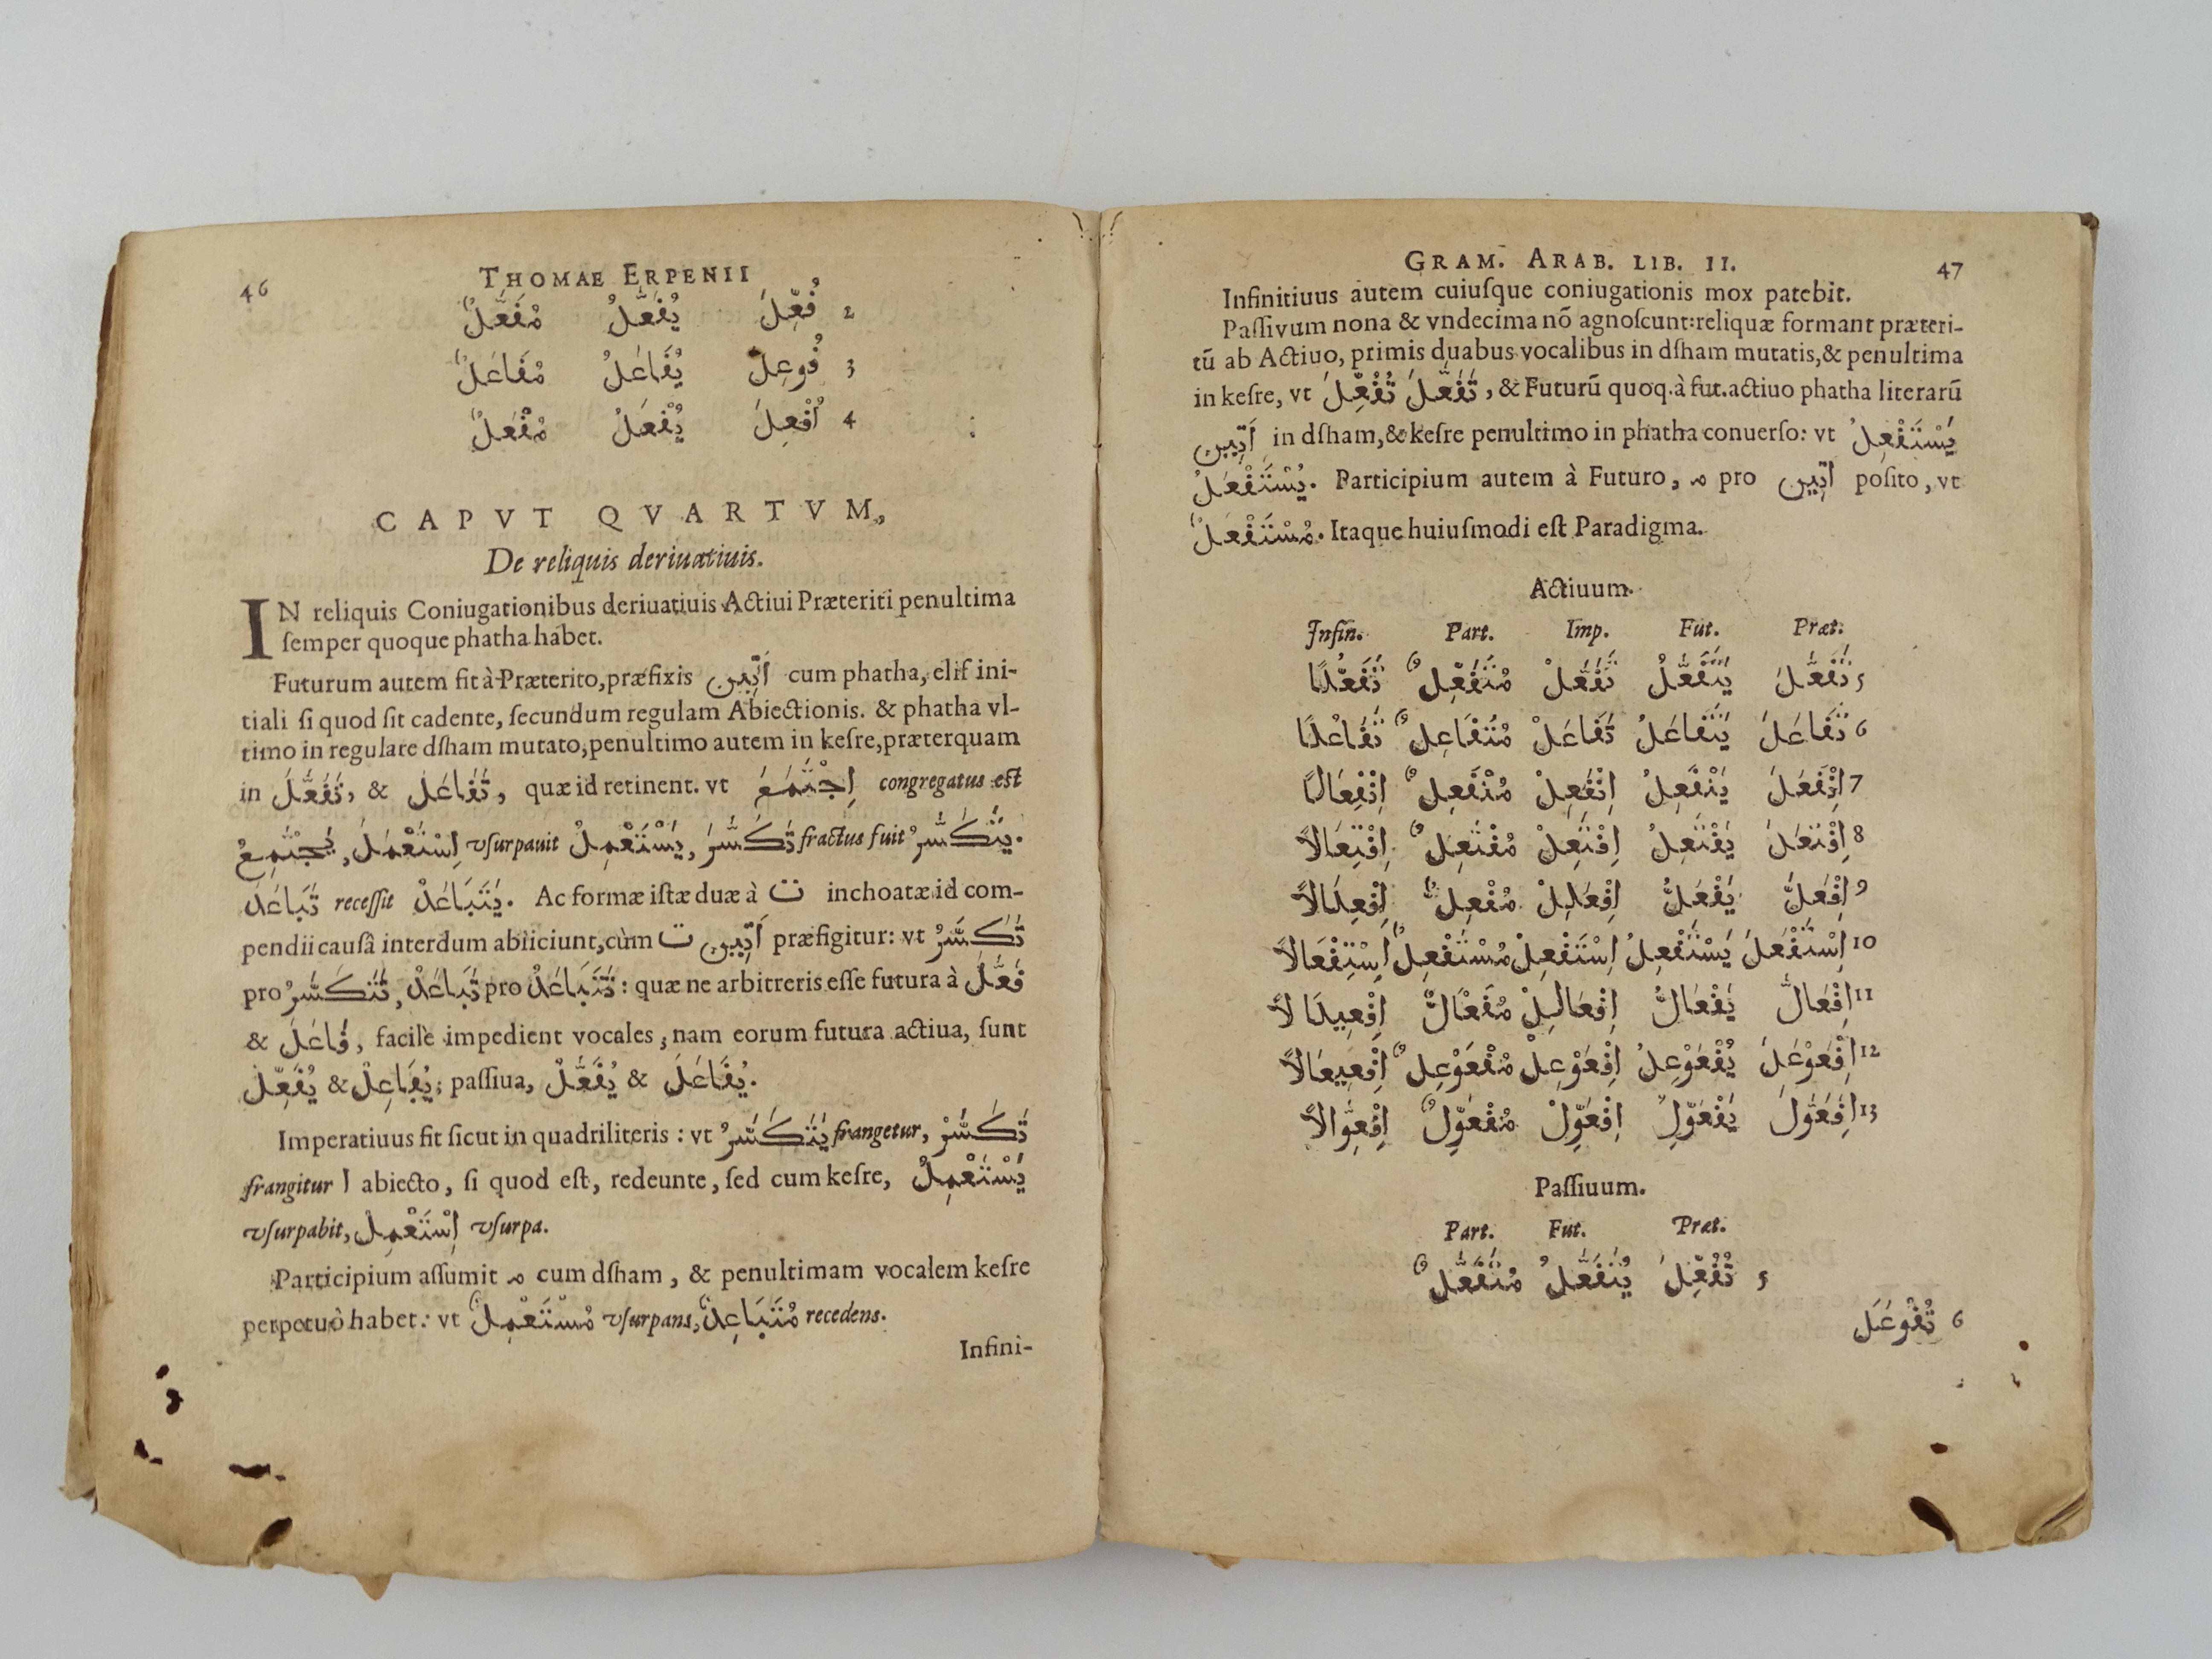 46 THOMAE ERPENII
2 فُعِّلَ يُفَعَّلُ مُفَعَّلٌ
3 فُوعِلَ يُفَاعَلُ مُفَاعَلٌ
4 أُفْعِلَ يُفْعَلُ مُفْعَلٌ
CAPVT QVARTVM,
De reliquis deriuatiuis.
IN reliquis Coniugationibus deriuatiuis Actiui Præteriti penultima
ſemper quoque phatha habet.
Futurum autem fit à Præterito, præfixis أَتَيِين cum phatha, elif ini-
tiali ſi quod ſit cadente, ſecundum regulam Abiectionis. & phatha vl-
timo in regulare dſham mutato, penultimo autem in keſre, præterquam
in تَفَعَّلَ, & تَفَاعَلَ, quæ id retinent. vt اِجْتَمَعَ congregatus est
يَجْتَمِعُ, اِسْتَعْمَلَ vſurpauit يَسْتَعْمِلُ, تَكَسَّرَ fractus fuit يَتَكَسَّرُ.
تَبَاعَدَ receſſit يَتَبَاعَدُ. Ac formæ iſtæ duæ à ت inchoatæ id com-
pendii cauſâ interdum abiiciunt, cùm ت أَتَيِين præfigitur: vt تَكَسَّرُ
pro تَتَكَسَّرُ, تَبَاعَدُ pro تَتَبَاعَدُ: quæ ne arbitreris eſſe futura à فَعَّلَ
& فَاعَلَ, facilè impedient vocales, nam eorum futura actiua, ſunt
يُفَعِّلُ & يُفَاعِلُ; paſſiua, يُفَعَّلُ & يُفَاعَلُ.
Imperatiuus fit ſicut in quadriliteris: vt يَتَكَسَّرُ frangetur, تَكَسَّرْ
frangitur ا abiecto, ſi quod eſt, redeunte, ſed cum keſre, يَسْتَعْمِلُ
vſurpabit, اِسْتَعْمِلْ vſurpa.
Participium aſſumit م cum dſham, & penultimam vocalem keſre
perpetuò habet: vt مُسْتَعْمِلٌ vſurpans, مُتَبَاعِدٌ recedens.
Infini-
GRAM. ARAB. LIB. II. 47
Infinitiuus autem cuiuſque coniugationis mox patebit.
Paſſivum nona & vndecima nō agnoſcunt: reliquæ formant præteri-
tū ab Actiuo, primis duabus vocalibus in dſham mutatis, & penultima
in keſre, vt تَفَعَّلَ تُفُعِّلَ, & Futurū quoq. à fut. actiuo phatha literarū
أَتَيِين in dſham, & keſre penultimo in phatha conuerſo: vt يَسْتَفْعِلُ
يُسْتَفْعَلُ. Participium autem à Futuro, م pro أَتَيِين poſito, vt
مُسْتَفْعَلٌ. Itaque huiuſmodi eſt Paradigma.
Actiuum.
Infin. Part. Imp. Fut. Præt.
5 تَفَعَّلَ يَتَفَعَّلُ تَفَعَّلْ مُتَفَعِّلٌ تَفَعُّلًا
6 تَفَاعَلَ يَتَفَاعَلُ تَفَاعَلْ مُتَفَاعِلٌ تَفَاعُلًا
7 اِنْفَعَلَ يَنْفَعِلُ اِنْفَعِلْ مُنْفَعِلٌ اِنْفِعَالًا
8 اِفْتَعَلَ يَفْتَعِلُ اِفْتَعِلْ مُفْتَعِلٌ اِفْتِعَالًا
9 اِفْعَلَّ يَفْعَلُّ اِفْعَلِلْ مُفْعِلٌّ اِفْعِلَالًا
10 اِسْتَفْعَلَ يَسْتَفْعِلُ اِسْتَفْعِلْ مُسْتَفْعِلٌ اِسْتِفْعَالًا
11 اِفْعَالَّ يَفْعَالُّ اِفْعَالِلْ مُفْعَالٌّ اِفْعِيلَالًا
12 اِفْعَوْعَلَ يَفْعَوْعِلُ اِفْعَوْعِلْ مُفْعَوْعِلٌ اِفْعِيعَالًا
13 اِفْعَوَّلَ يَفْعَوِّلُ اِفْعَوِّلْ مُفْعَوِّلٌ اِفْعِوَّالًا
Paſſiuum.
Part. Fut. Præt.
5 تُفُعِّلَ يُتَفَعَّلُ مُتَفَعَّلٌ
6 تُفُوعَلَ